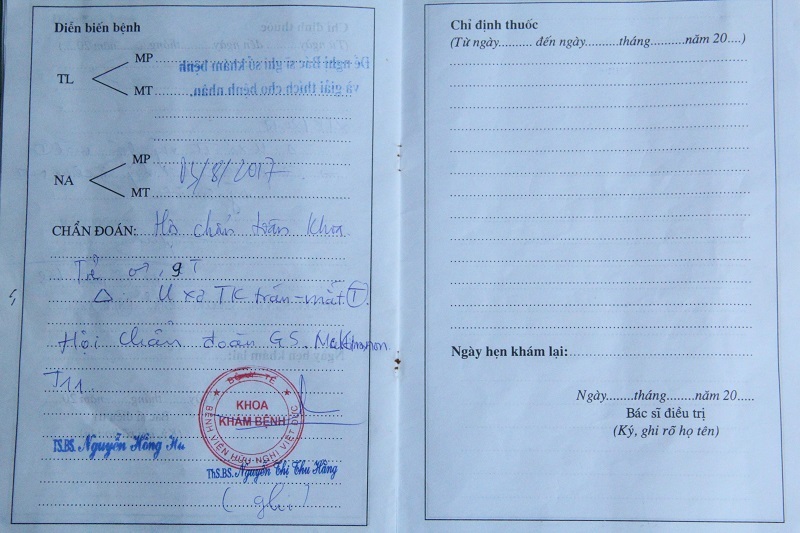 Diễn biến bệnh
Đề nghị Bác sĩ ghi sổ khám bệnh
và giải thích cho bệnh nhân.
TL
MP
MT
NA
MP
MT
05/8/2017
CHẨN ĐOÁN: Hội chẩn toàn khoa
Trẻ ♂, 9T
△ U xơ TK trán-mắt (T).
Hội chẩn đoàn GS.
BỘ Y TẾ
KHOA
KHÁM BỆNH
BỆNH VIỆN HỮU NGHỊ VIỆT ĐỨC
TS.BS. Nguyễn Hồng Hà
ThS.BS. Nguyễn Thị Thu Hằng
(ghi)
Chỉ định thuốc
(Từ ngày.......... đến ngày..........tháng..........năm 20....)
Ngày hẹn khám lại:
Ngày........tháng........năm 20.....
Bác sĩ điều trị
(Ký, ghi rõ họ tên)